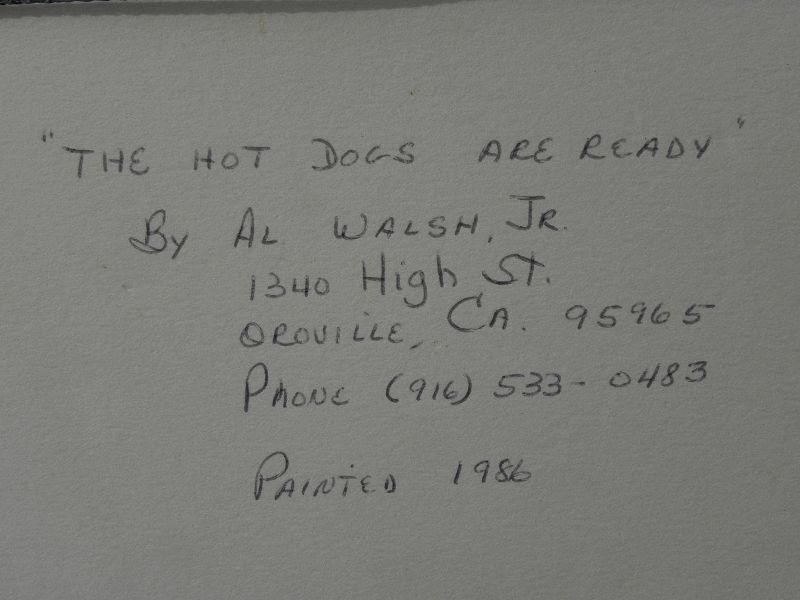 "THE HOT DOGS ARE READY"
By AL WALSH, JR.
1340 High ST.
OROVILLE, CA. 95965
PHONE (916) 533-0483
PAINTED 1986